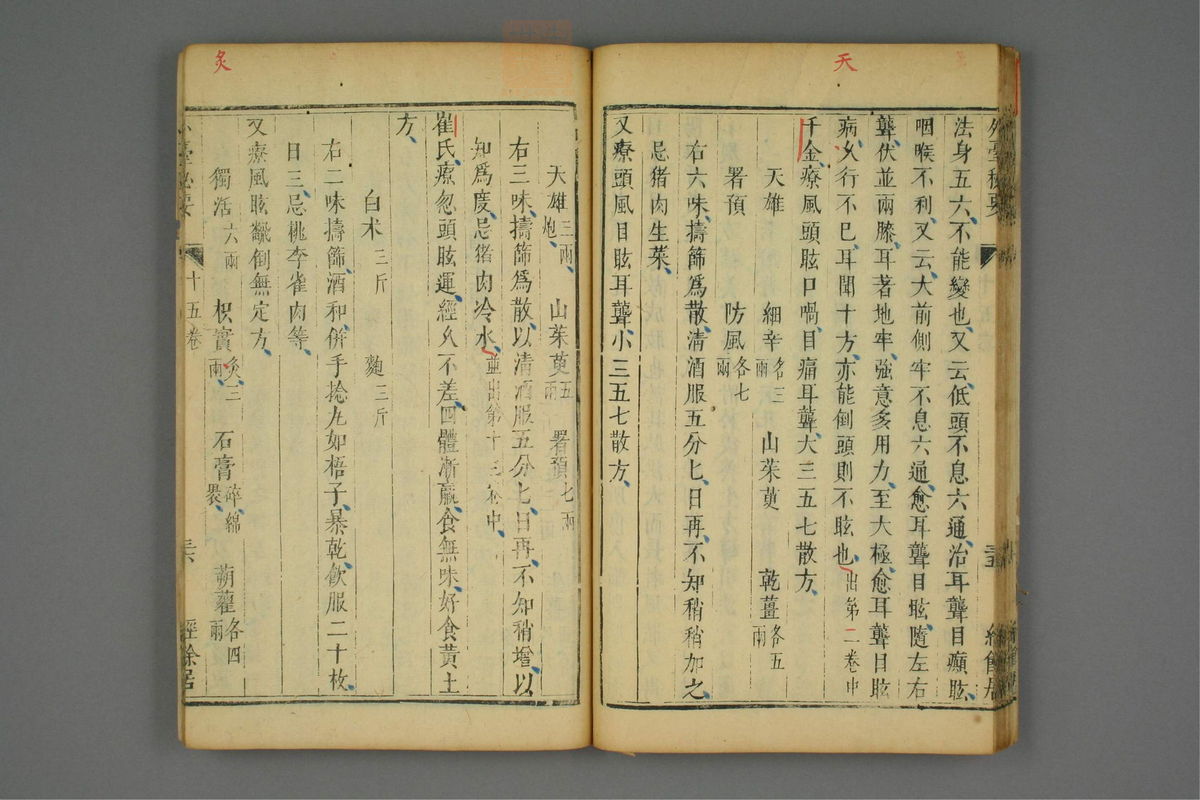 天
法身五六不能變也又云低頭不息六通治耳聾目癲眩
咽喉不利又云大前側牢不息六通愈耳聾目眩隨左右
聾伏並兩膝耳著地牢強意多用力至大極愈耳聾目眩
病久行不已耳聞十方亦能倒頭則不眩也出第二卷中
千金療風頭眩口喎目痛耳聾大三五七散方
天雄 細辛各三兩 山茱萸 乾薑各五兩
署預 防風各七兩
右六味擣篩為散清酒服五分匕日再不知稍稍加之
忌猪肉生菜
又療頭風目眩耳聾小三五七散方
炙
天雄三兩炮 山茱萸五兩 署預七兩
右三味擣篩為散以清酒服五分匕日再不知稍增以
知為度忌猪肉冷水並出第十三卷中
崔氏療忽頭眩運經久不差四體漸羸食無味好食黃土
方
白朮三斤 麴三斤
右二味擣篩酒和併手捻丸如梧子暴乾飲服二十枚
日三忌桃李雀肉等
又療風眩翻倒無定方
獨活六兩 枳實炙三兩 石膏碎綿裹 蒴藋各四兩
十五卷